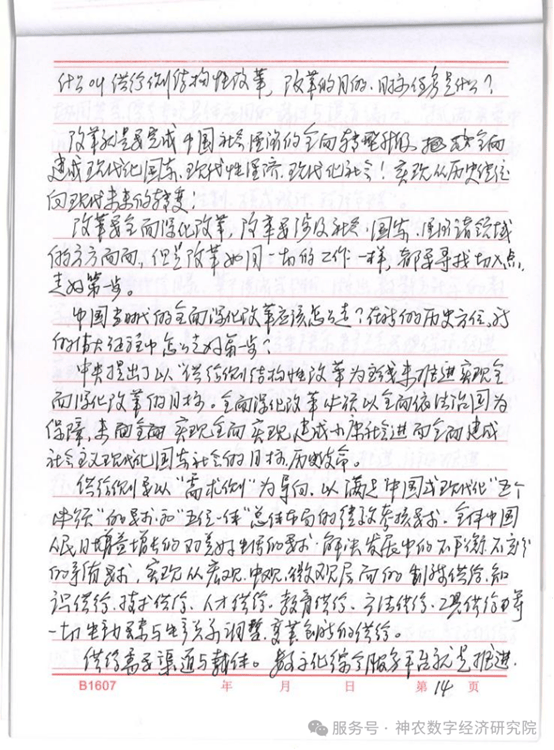 什么叫供给侧结构性改革，改革的目的、目标任务是什么？
改革就是要完成中国社会经济的全面转型升级，全面
建成现代化国家、现代性经济、现代化社会！实现从历史
向现代未来的转变！
改革要全面深化改革，改革要涉及社会、国家、经济诸领域
的方方面面，但是改革如同一切的工作一样，都要寻找切入点，
走好第一步。
中国当时代的全面深化改革应该怎么走？在新的历史方位，新
的伟大征程中怎么走好第一步？
中央提出了以"供给侧结构性改革为主线来推进实现全
面深化改革的目标。全面深化改革必须以全面依法治国为
保障，来实现全面建成小康社会进而全面建成
社会主义现代化国家社会的目标，历史使命。
供给侧要以"需求侧"为导向，以满足"中国式现代化"五个
"的要求和"五位一体"总体布局的要求，全体中国
人民日增益增长的对美好生活的要求，解决发展中的不平衡不充分
的矛盾要求，实现从宏观、中观、微观层面的制度供给、知
识供给、技术供给、人才供给、教育供给、方法供给、工具供给等
一切生产要素与生产关系调整，变革创新的供给。
供给需要渠道与载体。数字化综合服务平台就是推进
B1607 年 月 日 第 14 页
服务号·神农数字经济研究院